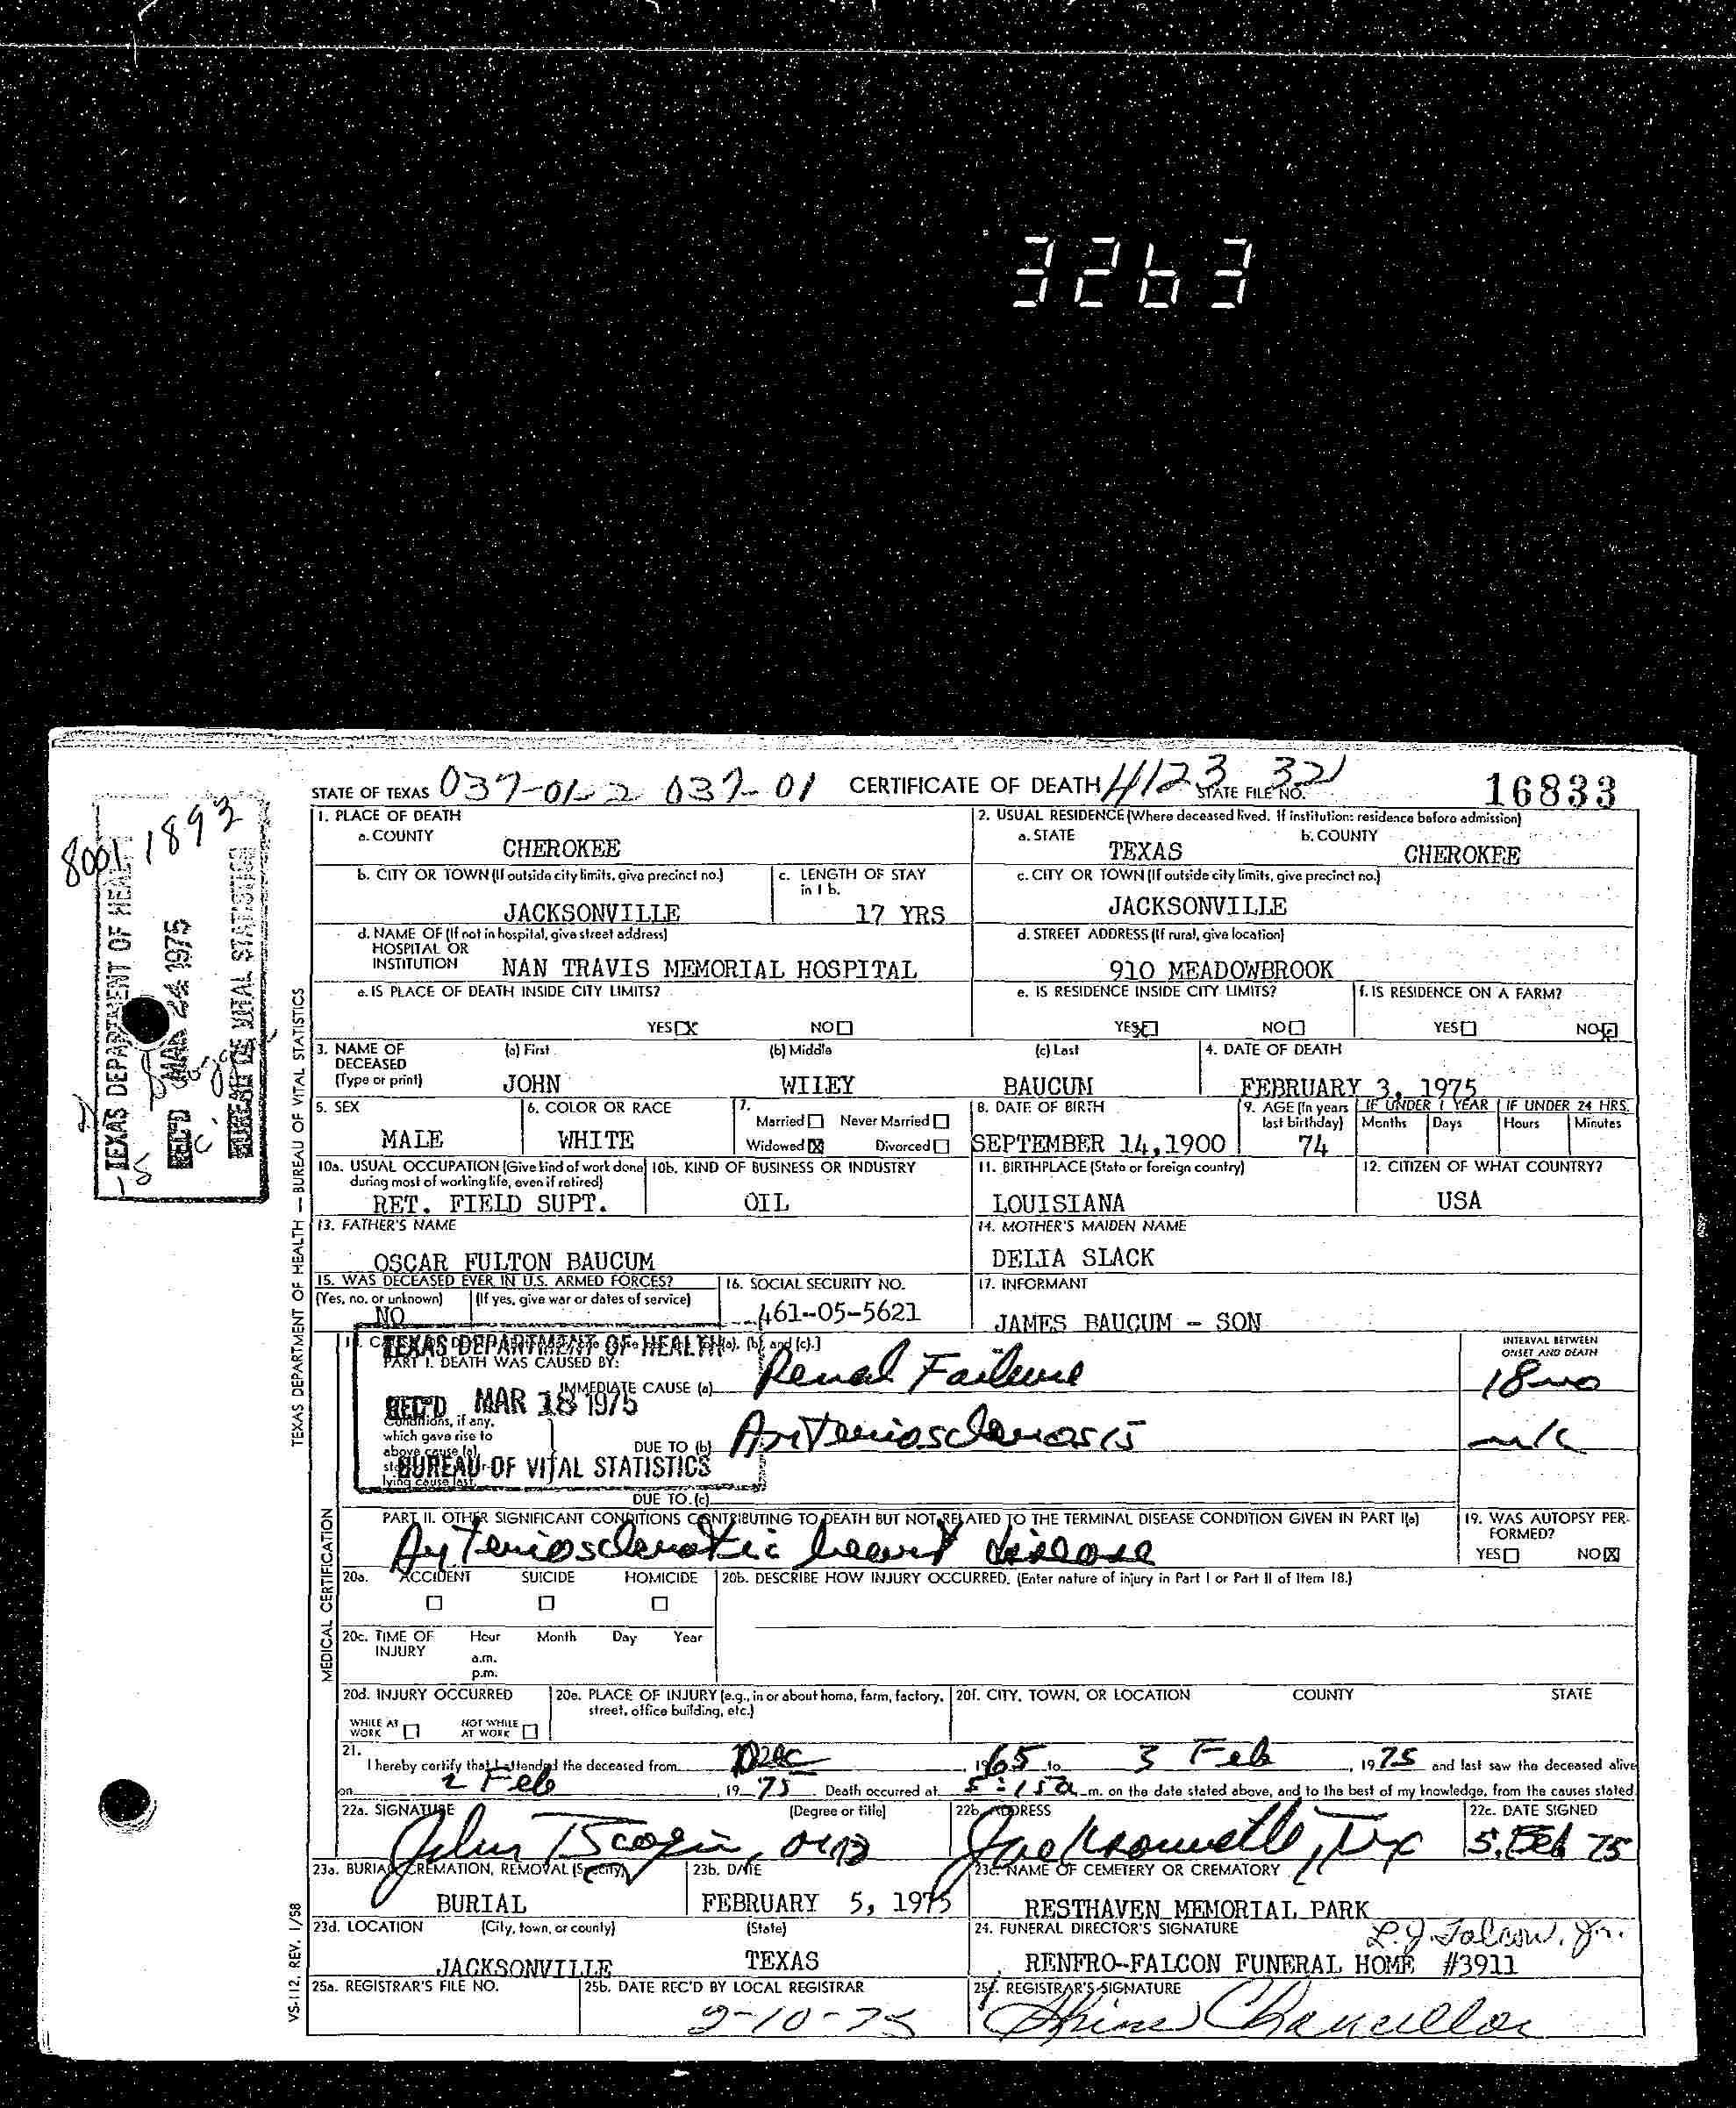 3263
STATE OF TEXAS 037-01-2 037-01 CERTIFICATE OF DEATH 4123 321 STATE FILE NO. 16833
8001 1893
TEXAS DEPARTMENT OF HEALTH
REC'D MAR 24 1975
BUREAU OF VITAL STATISTICS
TEXAS DEPARTMENT OF HEALTH — BUREAU OF VITAL STATISTICS
1. PLACE OF DEATH
a. COUNTY
CHEROKEE
2. USUAL RESIDENCE (Where deceased lived. If institution: residence before admission)
a. STATE
TEXAS
b. COUNTY
CHEROKEE
b. CITY OR TOWN (If outside city limits, give precinct no.)
JACKSONVILLE
c. LENGTH OF STAY in 1 b.
17 YRS
c. CITY OR TOWN (If outside city limits, give precinct no.)
JACKSONVILLE
d. NAME OF (If not in hospital, give street address)
HOSPITAL OR
INSTITUTION NAN TRAVIS MEMORIAL HOSPITAL
d. STREET ADDRESS (If rural, give location)
910 MEADOWBROOK
e. IS PLACE OF DEATH INSIDE CITY LIMITS?
YES X NO
e. IS RESIDENCE INSIDE CITY LIMITS?
YES NO
f. IS RESIDENCE ON A FARM?
YES NO
3. NAME OF DECEASED (Type or print)
(a) First
JOHN
(b) Middle
WILEY
(c) Last
BAUCUM
4. DATE OF DEATH
FEBRUARY 3, 1975
5. SEX
MALE
6. COLOR OR RACE
WHITE
7.
Married Never Married
Widowed X Divorced
8. DATE OF BIRTH
SEPTEMBER 14,1900
9. AGE (In years last birthday)
74
IF UNDER 1 YEAR
Months Days
IF UNDER 24 HRS.
Hours Minutes
10a. USUAL OCCUPATION (Give kind of work done during most of working life, even if retired)
RET. FIELD SUPT.
10b. KIND OF BUSINESS OR INDUSTRY
OIL
11. BIRTHPLACE (State or foreign country)
LOUISIANA
12. CITIZEN OF WHAT COUNTRY?
USA
13. FATHER'S NAME
OSCAR FULTON BAUCUM
14. MOTHER'S MAIDEN NAME
DELIA SLACK
15. WAS DECEASED EVER IN U.S. ARMED FORCES?
(Yes, no, or unknown) (If yes, give war or dates of service)
NO
16. SOCIAL SECURITY NO.
461-05-5621
17. INFORMANT
JAMES BAUCUM - SON
TEXAS DEPARTMENT OF HEALTH
REC'D MAR 18 1975
BUREAU OF VITAL STATISTICS
(a), (b), and (c).]
PART I. DEATH WAS CAUSED BY:
INTERVAL BETWEEN ONSET AND DEATH
IMMEDIATE CAUSE (a) Renal Failure 18 mo
Conditions, if any,
which gave rise to
above cause (a),
lying cause last.
DUE TO (b) Arteriosclerosis
DUE TO (c)
MEDICAL CERTIFICATION
PART II. OTHER SIGNIFICANT CONDITIONS CONTRIBUTING TO DEATH BUT NOT RELATED TO THE TERMINAL DISEASE CONDITION GIVEN IN PART I(a)
Arteriosclerotic heart disease
19. WAS AUTOPSY PERFORMED?
YES NO X
20a. ACCIDENT SUICIDE HOMICIDE
20b. DESCRIBE HOW INJURY OCCURRED. (Enter nature of injury in Part I or Part II of Item 18.)
20c. TIME OF INJURY
Hour Month Day Year
a.m.
p.m.
20d. INJURY OCCURRED
WHILE AT WORK NOT WHILE AT WORK
20e. PLACE OF INJURY (e.g., in or about home, farm, factory, street, office building, etc.)
20f. CITY, TOWN, OR LOCATION COUNTY STATE
21.
I hereby certify that I attended the deceased from Dec 1965 to 3 Feb, 1975 and last saw the deceased alive
on 2 Feb 19 75 Death occurred at 5:15 a.m. on the date stated above, and to the best of my knowledge, from the causes stated.
22a. SIGNATURE (Degree or title)
John
22b. ADDRESS
Jacksonville, Tex
22c. DATE SIGNED
5 Feb 75
23a. BURIAL, CREMATION, REMOVAL (Specify)
BURIAL
23b. DATE
FEBRUARY 5, 1975
23c. NAME OF CEMETERY OR CREMATORY
RESTHAVEN MEMORIAL PARK
23d. LOCATION (City, town, or county) (State)
JACKSONVILLE TEXAS
24. FUNERAL DIRECTOR'S SIGNATURE
L.J. Falcon, Jr.
RENFRO-FALCON FUNERAL HOME #3911
25a. REGISTRAR'S FILE NO.
25b. DATE REC'D BY LOCAL REGISTRAR
2-10-75
25c. REGISTRAR'S SIGNATURE
Chancellor
VS-112, REV. 1/58